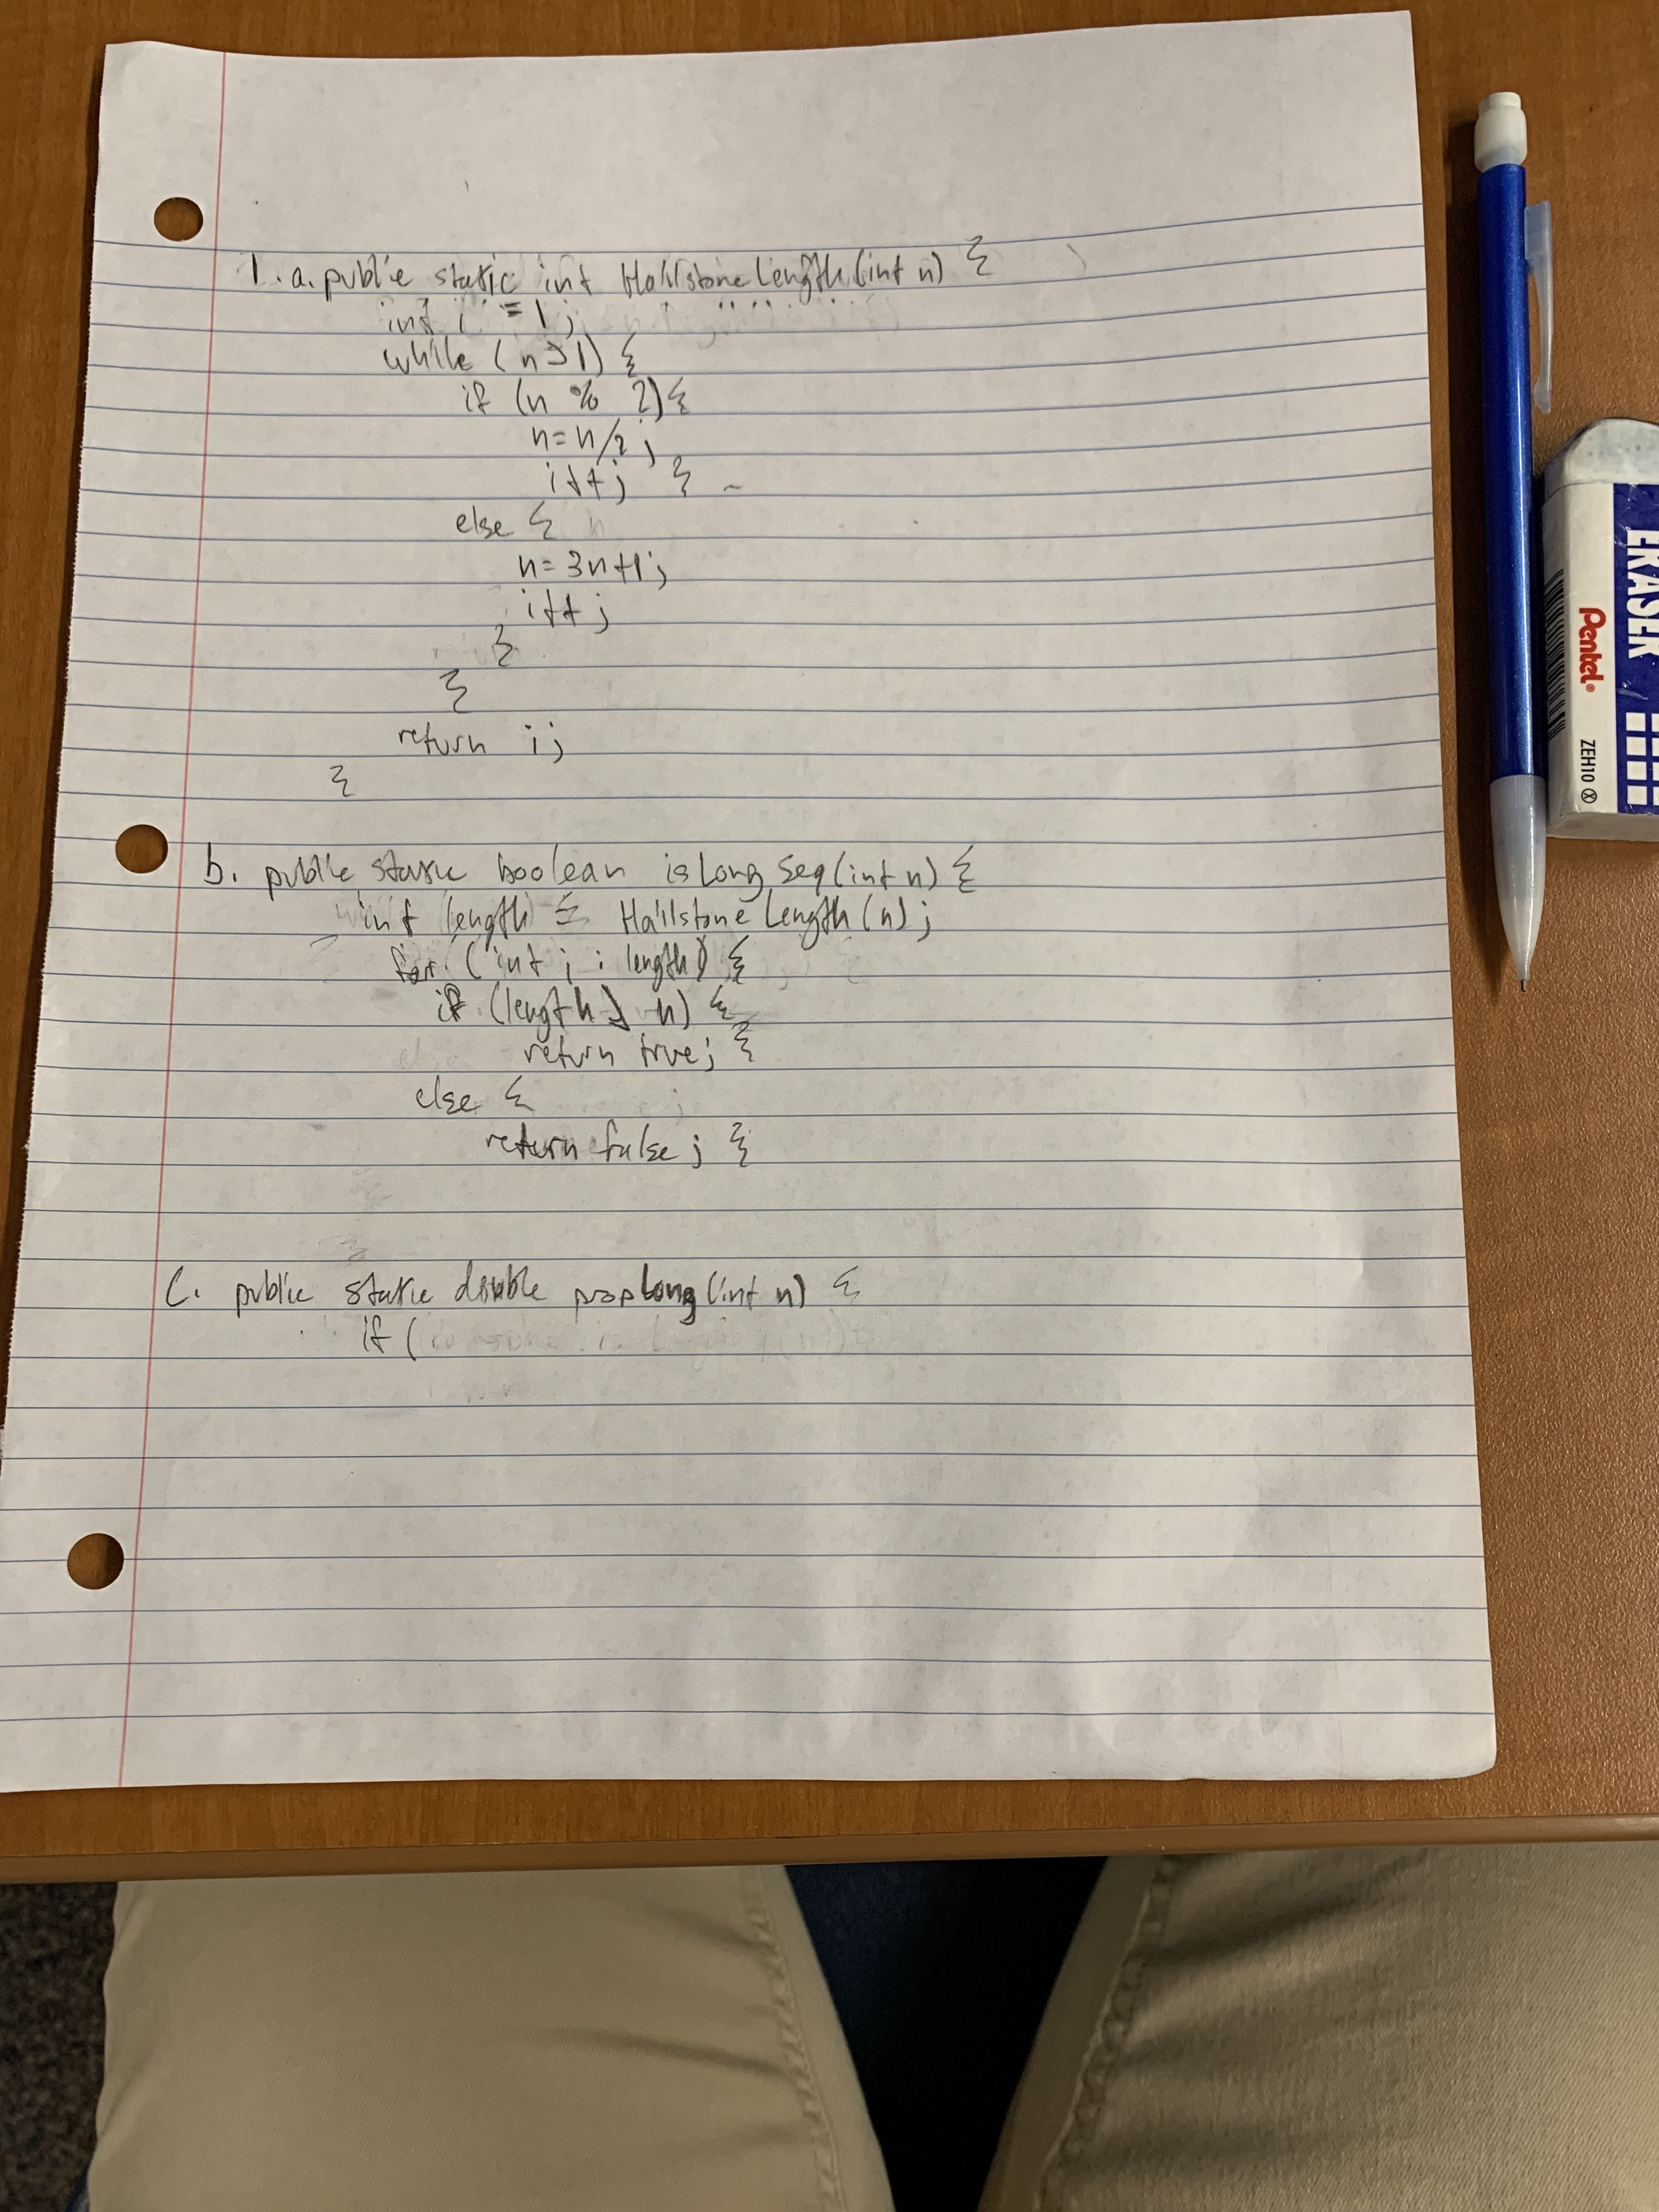 1. a. public static int HailstoneLength(int n) {
int i = 1;
while (n > 1) {
if (n % 2) {
n = n/2;
i++; }
else {
n = 3n+1;
i++;
}
}
return i;
}
b. public static boolean isLongSeq(int n) {
int length = HailstoneLength(n);
for (int i : length) {
if (length > n) {
return true; }
else {
return false; }
C. public static double propLong(int n) {
if (
ERASER
Pentel®
ZEH10